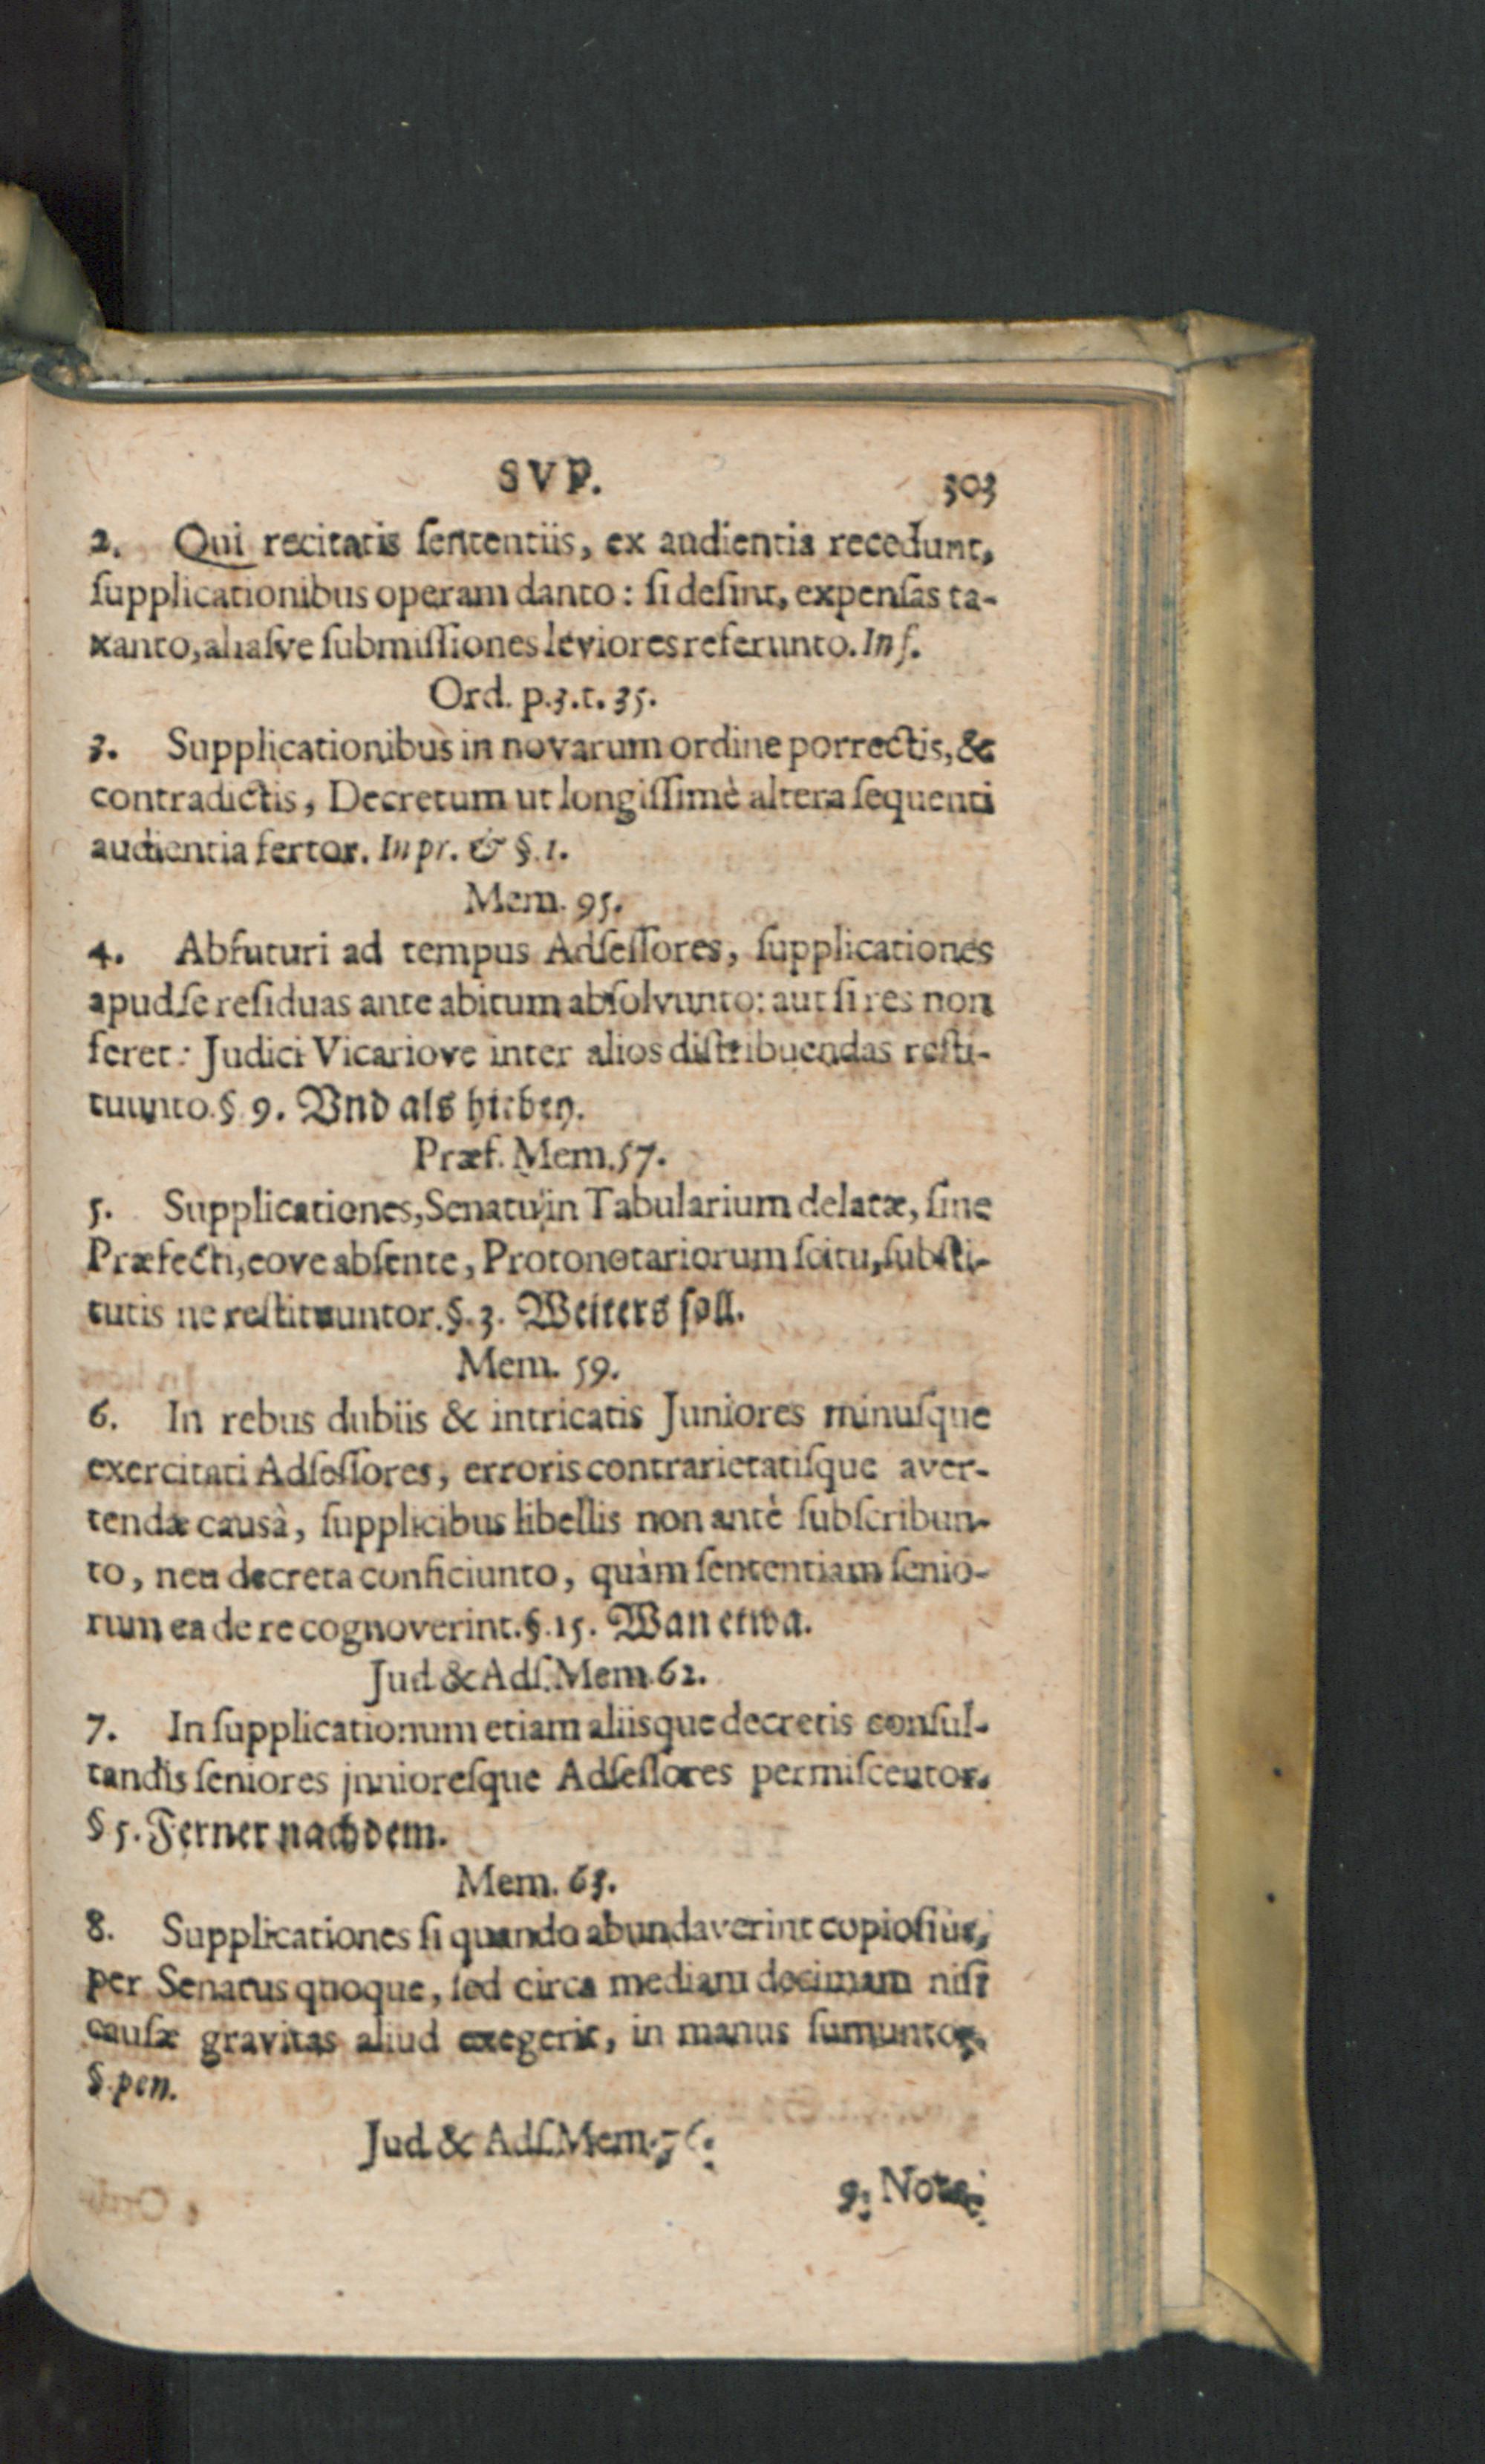 SVP. 303
2. Qui recitatis ſententiis, ex audientia recedunt,
ſupplicationibus operam danto: ſi deſint, expenſas ta-
xanto, aliaſve ſubmiſſiones leviores referunto. In f.
Ord. p.3.t.35.
3. Supplicationibus in novarum ordine porrectis, &
contradictis, Decretum ut longiſſimè altera ſequenti
audientia fertor. In pr. & §.1.
Mem. 95.
4. Abfuturi ad tempus Adſeſſores, ſupplicationes
apud ſe reſiduas ante abitum abſolvunto: aut ſi res non
feret: Judici Vicariove inter alios diſtribuendas reſti-
tuunto. § 9. Vnd als hieben.
Præf. Mem. 57.
5. Supplicationes, Senatu in Tabularium delatæ, ſine
Præfecti, eove abſente, Protonotariorum ſcitu, ſubſti-
tutis ne reſtituuntor. §.3. Weiters ſoll.
Mem. 59.
6. In rebus dubiis & intricatis Juniores minuſque
exercitati Adſeſſores, erroris contrarietatiſque aver-
tendæ causâ, ſupplicibus libellis non antè ſubſcribun-
to, neu decreta conficiunto, quàm ſententiam ſenio-
rum ea de re cognoverint. §.15. Wan etwa.
Jud & Adſ. Mem. 62.
7. In ſupplicationum etiam aliisque decretis conſul-
tandis ſeniores junioreſque Adſeſſores permiſcentor.
§ 5. Ferner nachdem.
Mem. 65.
8. Supplicationes ſi quando abundaverint copioſiùs,
per Senatus quoque, ſed circa mediam decimam niſi
cauſæ gravitas aliud exegerit, in manus ſumuntor.
§. pen.
Jud & Adſ. Mem.
9. Nota-